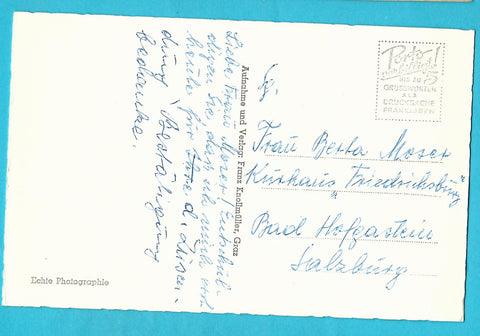 Liebe Frau Moser! Entschul-
digen Sie, daß ich mich erst
heute für Ihre
dung Bestätigung
bedanke.
Aufnahme und Verlag: Franz Knollmüller, Graz
Echte Photographie
Porto
BIS ZU 5
GRUSSWORTEN
ALS
DRUCKSACHE
FRANKIEREN
Frau Berta Moser
Kurhaus "Friedrichsburg"
Bad Hofgastein
Salzburg